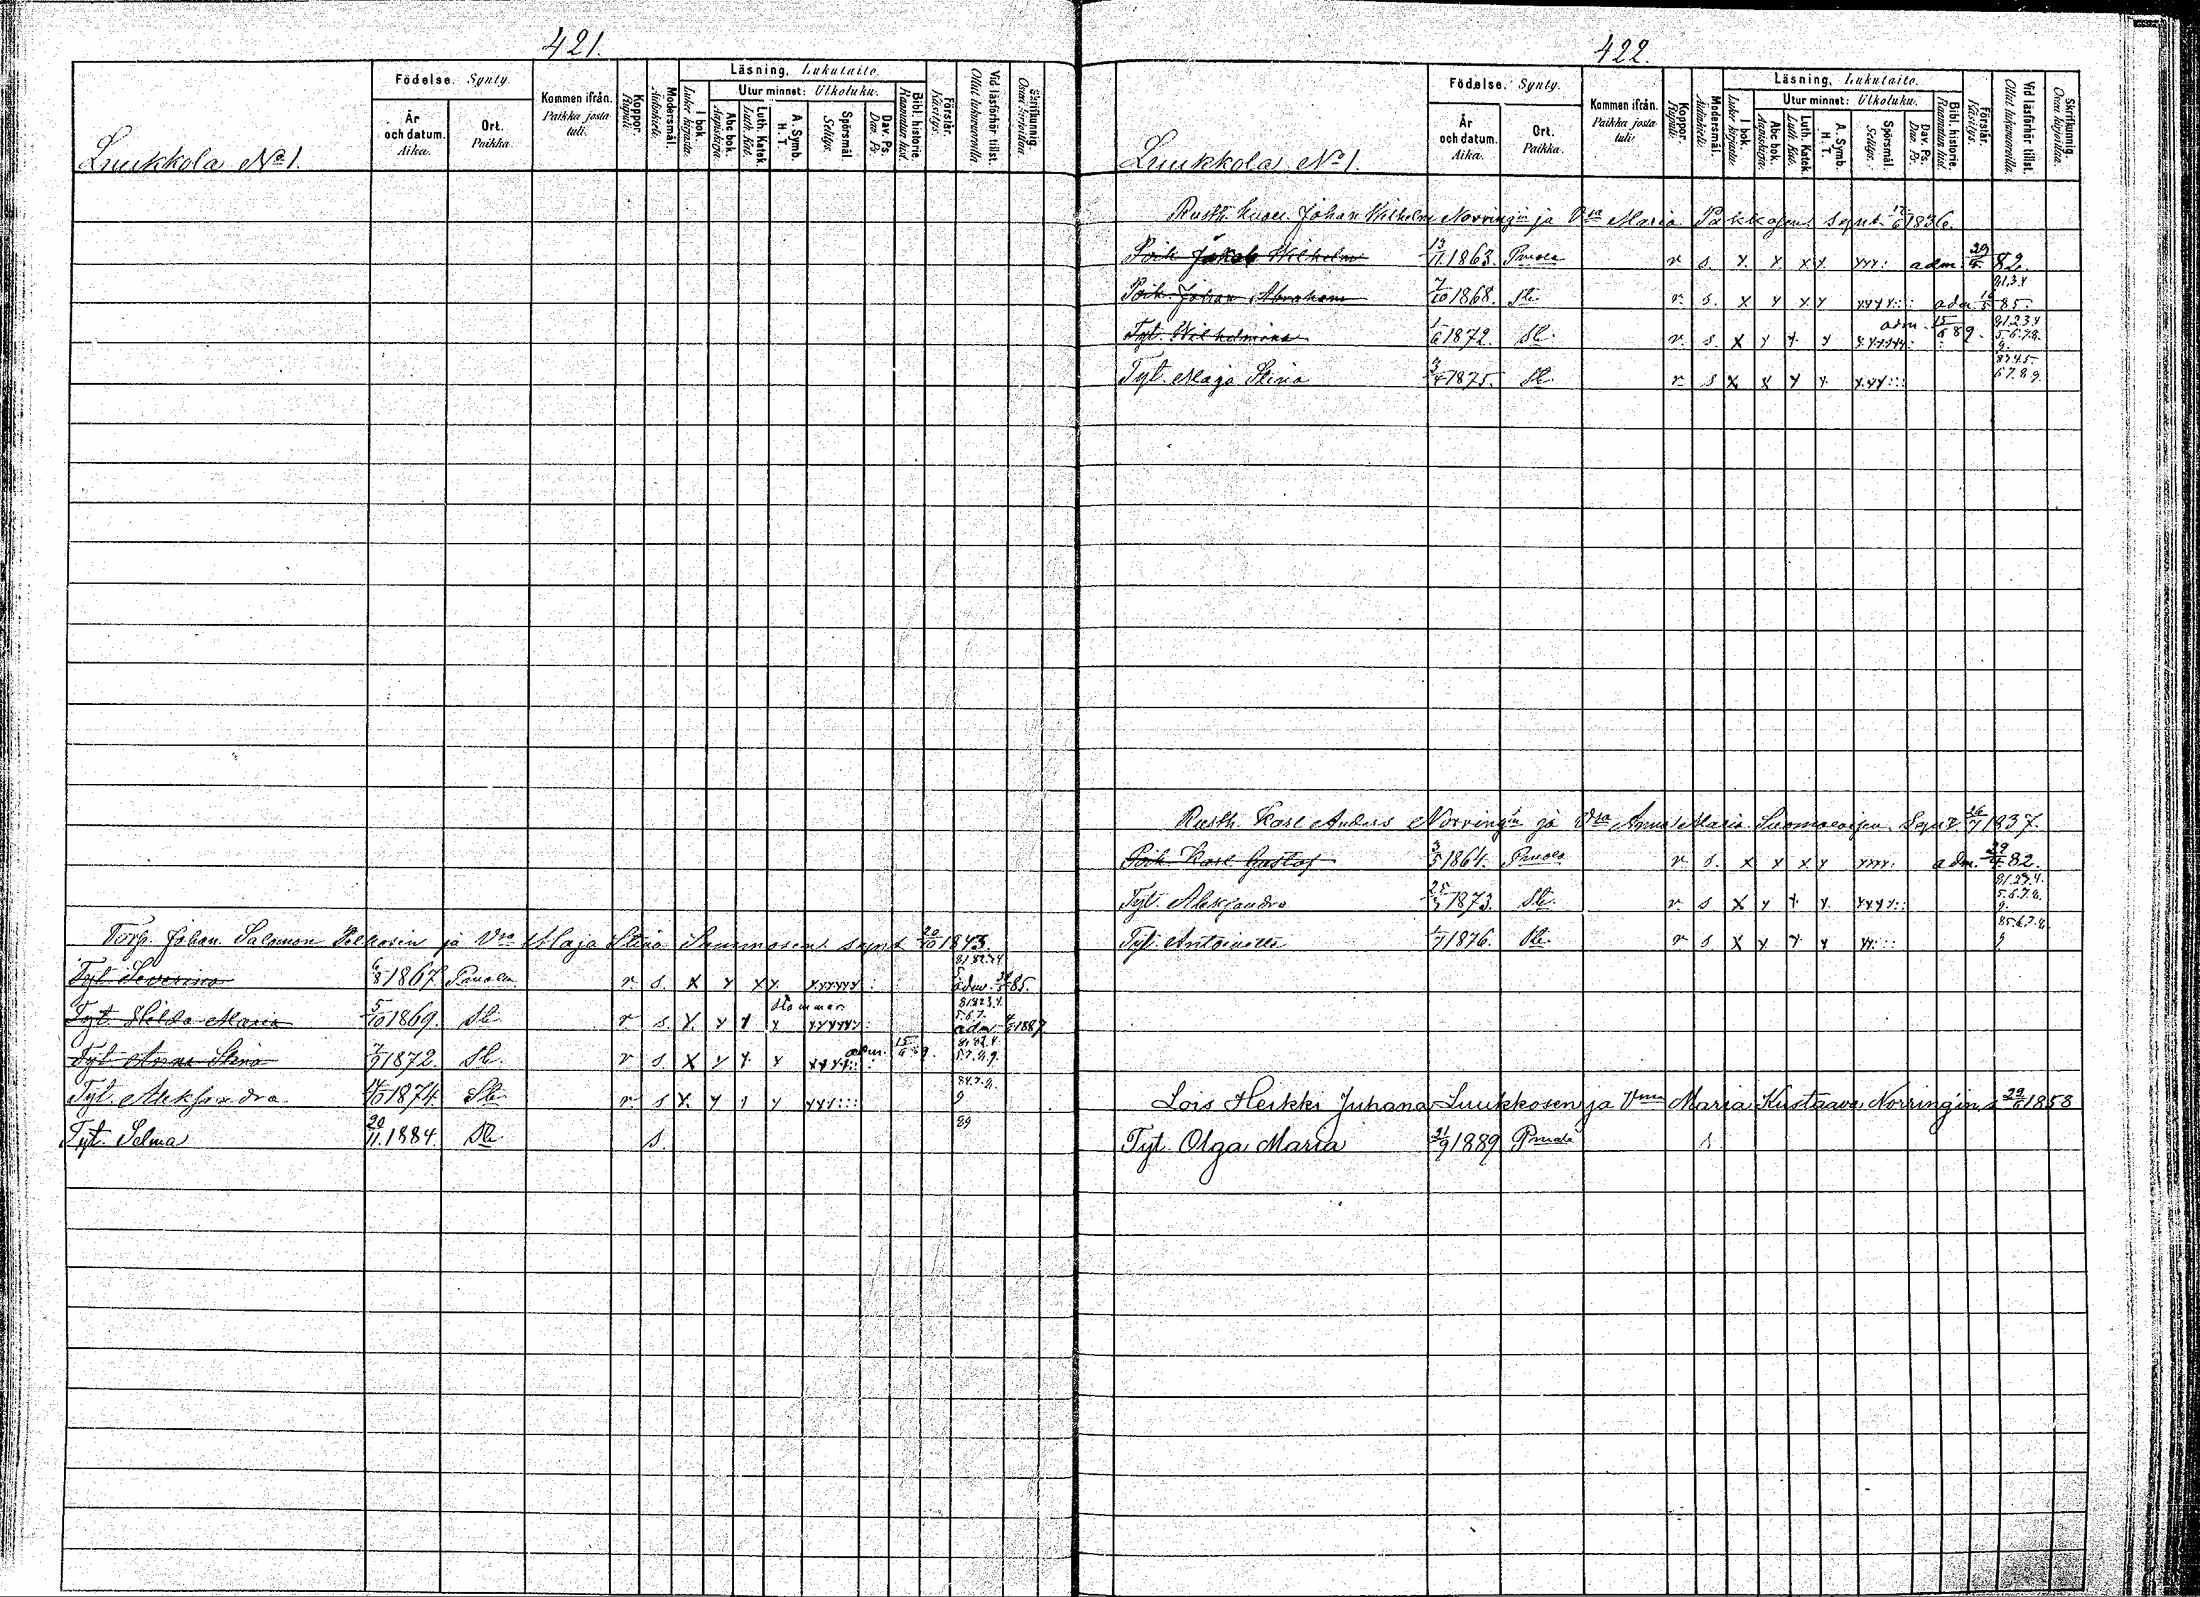 421.
Luukkola No 1.
Födelse. Synty.
År och datum. Aika.
Ort. Paikka.
Kommen ifrån. Paikka josta tuli.
Koppor. Rupuli.
Modersmål. Äidinkieli.
Läsning. Lukutaito.
I bok. Lukee kirjasta.
Utur minnet: Ulkoluku.
Abc bok. Aapiskirja.
Luth. Katek. Luth. Kat.
A. Symb. H. T.
Spörsmål. Selitys.
Dav. Ps. Dav. Ps.
Bibl. historie. Raamatun hist.
Förstår. Käsitys.
Vid läsförhör tillst. Ollut lukuwuorolla.
Skrifkunnig. Osaa kirjoittaa.
Torp. Johan Salomon ja Vmo Maja Stina synt 20/10 1843.
Tyt. Severina 6/8 1867 Pmola r s. x y x x. yyyyyy : 81 82 3 4 5 adm. 85.
Tyt. Hilda Maria 5/10 1869. Sle. r s. x. y y y stammar yyyyyy : 81 82 3. 4. 5. 6. 7. adm. 1887.
Tyt. Anna Stina 7/9 1872. Sle. r s. x y y. y adm. 15/6 89.
Tyt. Aleksandra 14/10 1874. Sle. r. s x. y y y yyy::: 84. 7. 8. 9
Tyt. Selma 20/11. 1884. Sle s. 89
422.
Luukkola No 1.
Födelse. Synty.
År och datum. Aika.
Ort. Paikka.
Kommen ifrån. Paikka josta tuli.
Koppor. Rupuli.
Modersmål. Äidinkieli.
Läsning. Lukutaito.
I bok. Lukee kirjasta.
Utur minnet: Ulkoluku.
Abc bok. Aapiskirja.
Luth. Katek. Luth. Kat.
A. Symb. H. T.
Spörsmål. Selitys.
Dav. Ps. Dav. Ps.
Bibl. historie. Raamatun hist.
Förstår. Käsitys.
Vid läsförhör tillst. Ollut lukuwuorolla.
Skrifkunnig. Osaa kirjoittaa.
Rusth. Johan Wilhelm Norringin ja Vmo Maria Pakkasen synt. 1836.
Poik. Jakob Wilhelm 13/11 1863. Pmola r s. x. y x x. yyy: adm. 29/ 82.
Poik. Johan Abraham 7/10 1868. Sle. r. s. x y x y yyyy::: adm. 85.
Tyt. Wilhelmina 1/6 1872. Sle. r. s. x y x. y adm. 15/6 89. 81 2 3 4 5. 6. 7. 8. 9.
Tyt. Maja Stina 3/4 1875. Sle. r. s x x y y. y.yy::: 5 7. 8. 9.
Rusth. Karl Anders Norringin ja Vmo Anna Maria Suomalaisen Synt 26/7 1837.
Poik. Karl Gustaf 3/5 1864. Pmola r s. x y x y yyyy: adm. 29/ 82.
Tyt. Aleksandra 25/ 1873. Sle. r. s x y x. y. yyyy:: 5. 6. 7. 8. 9.
Tyt. Antoinette 1/7 1876. Sle r s x y y y yy::: 85. 6. 7. 8. 9
Lois Heikki Juhana Luukkosen ja Vmo Maria Kustaava Norringin s 1858
Tyt. Olga Maria 21/9 1889 Pmola s.